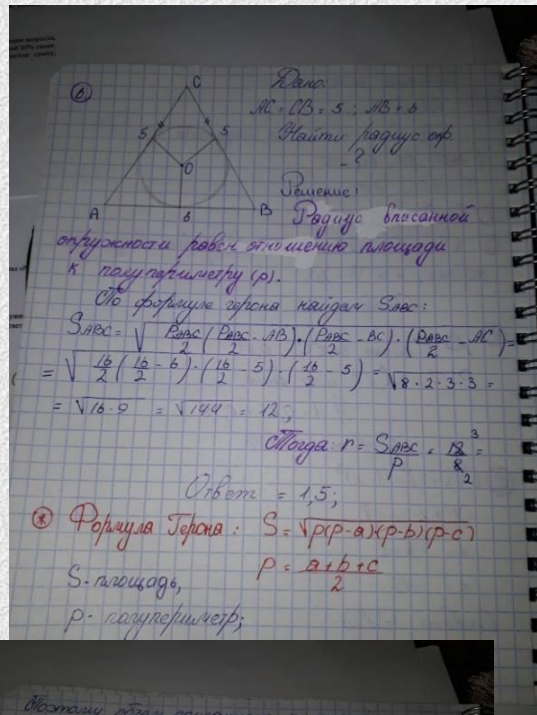 ⑥
C
Дано:
AC = CB = 5 ; AB = 6
Найти радиус окр.
- ?
5
5
O
A
6
B
Решение:
Радиус вписанной
окружности равен отношению площади
к полупериметру (p).
По формуле герона найдем S_ABC:
S_ABC = √(P_ABC/2 (P_ABC/2 - AB)·(P_ABC/2 - BC)·(P_ABC/2 - AC)) =
= √(16/2 (16/2 - 6)·(16/2 - 5)·(16/2 - 5)) = √(8·2·3·3) =
= √(16·9) = √144 = 12;
Тогда: r = S_ABC/p = 12/8 ³ ₂ =
Ответ = 1,5;
⊛ Формула Герона: S = √(p(p-a)(p-b)(p-c))
p = (a+b+c)/2
S - площадь,
p - полупериметр;
Поэтому